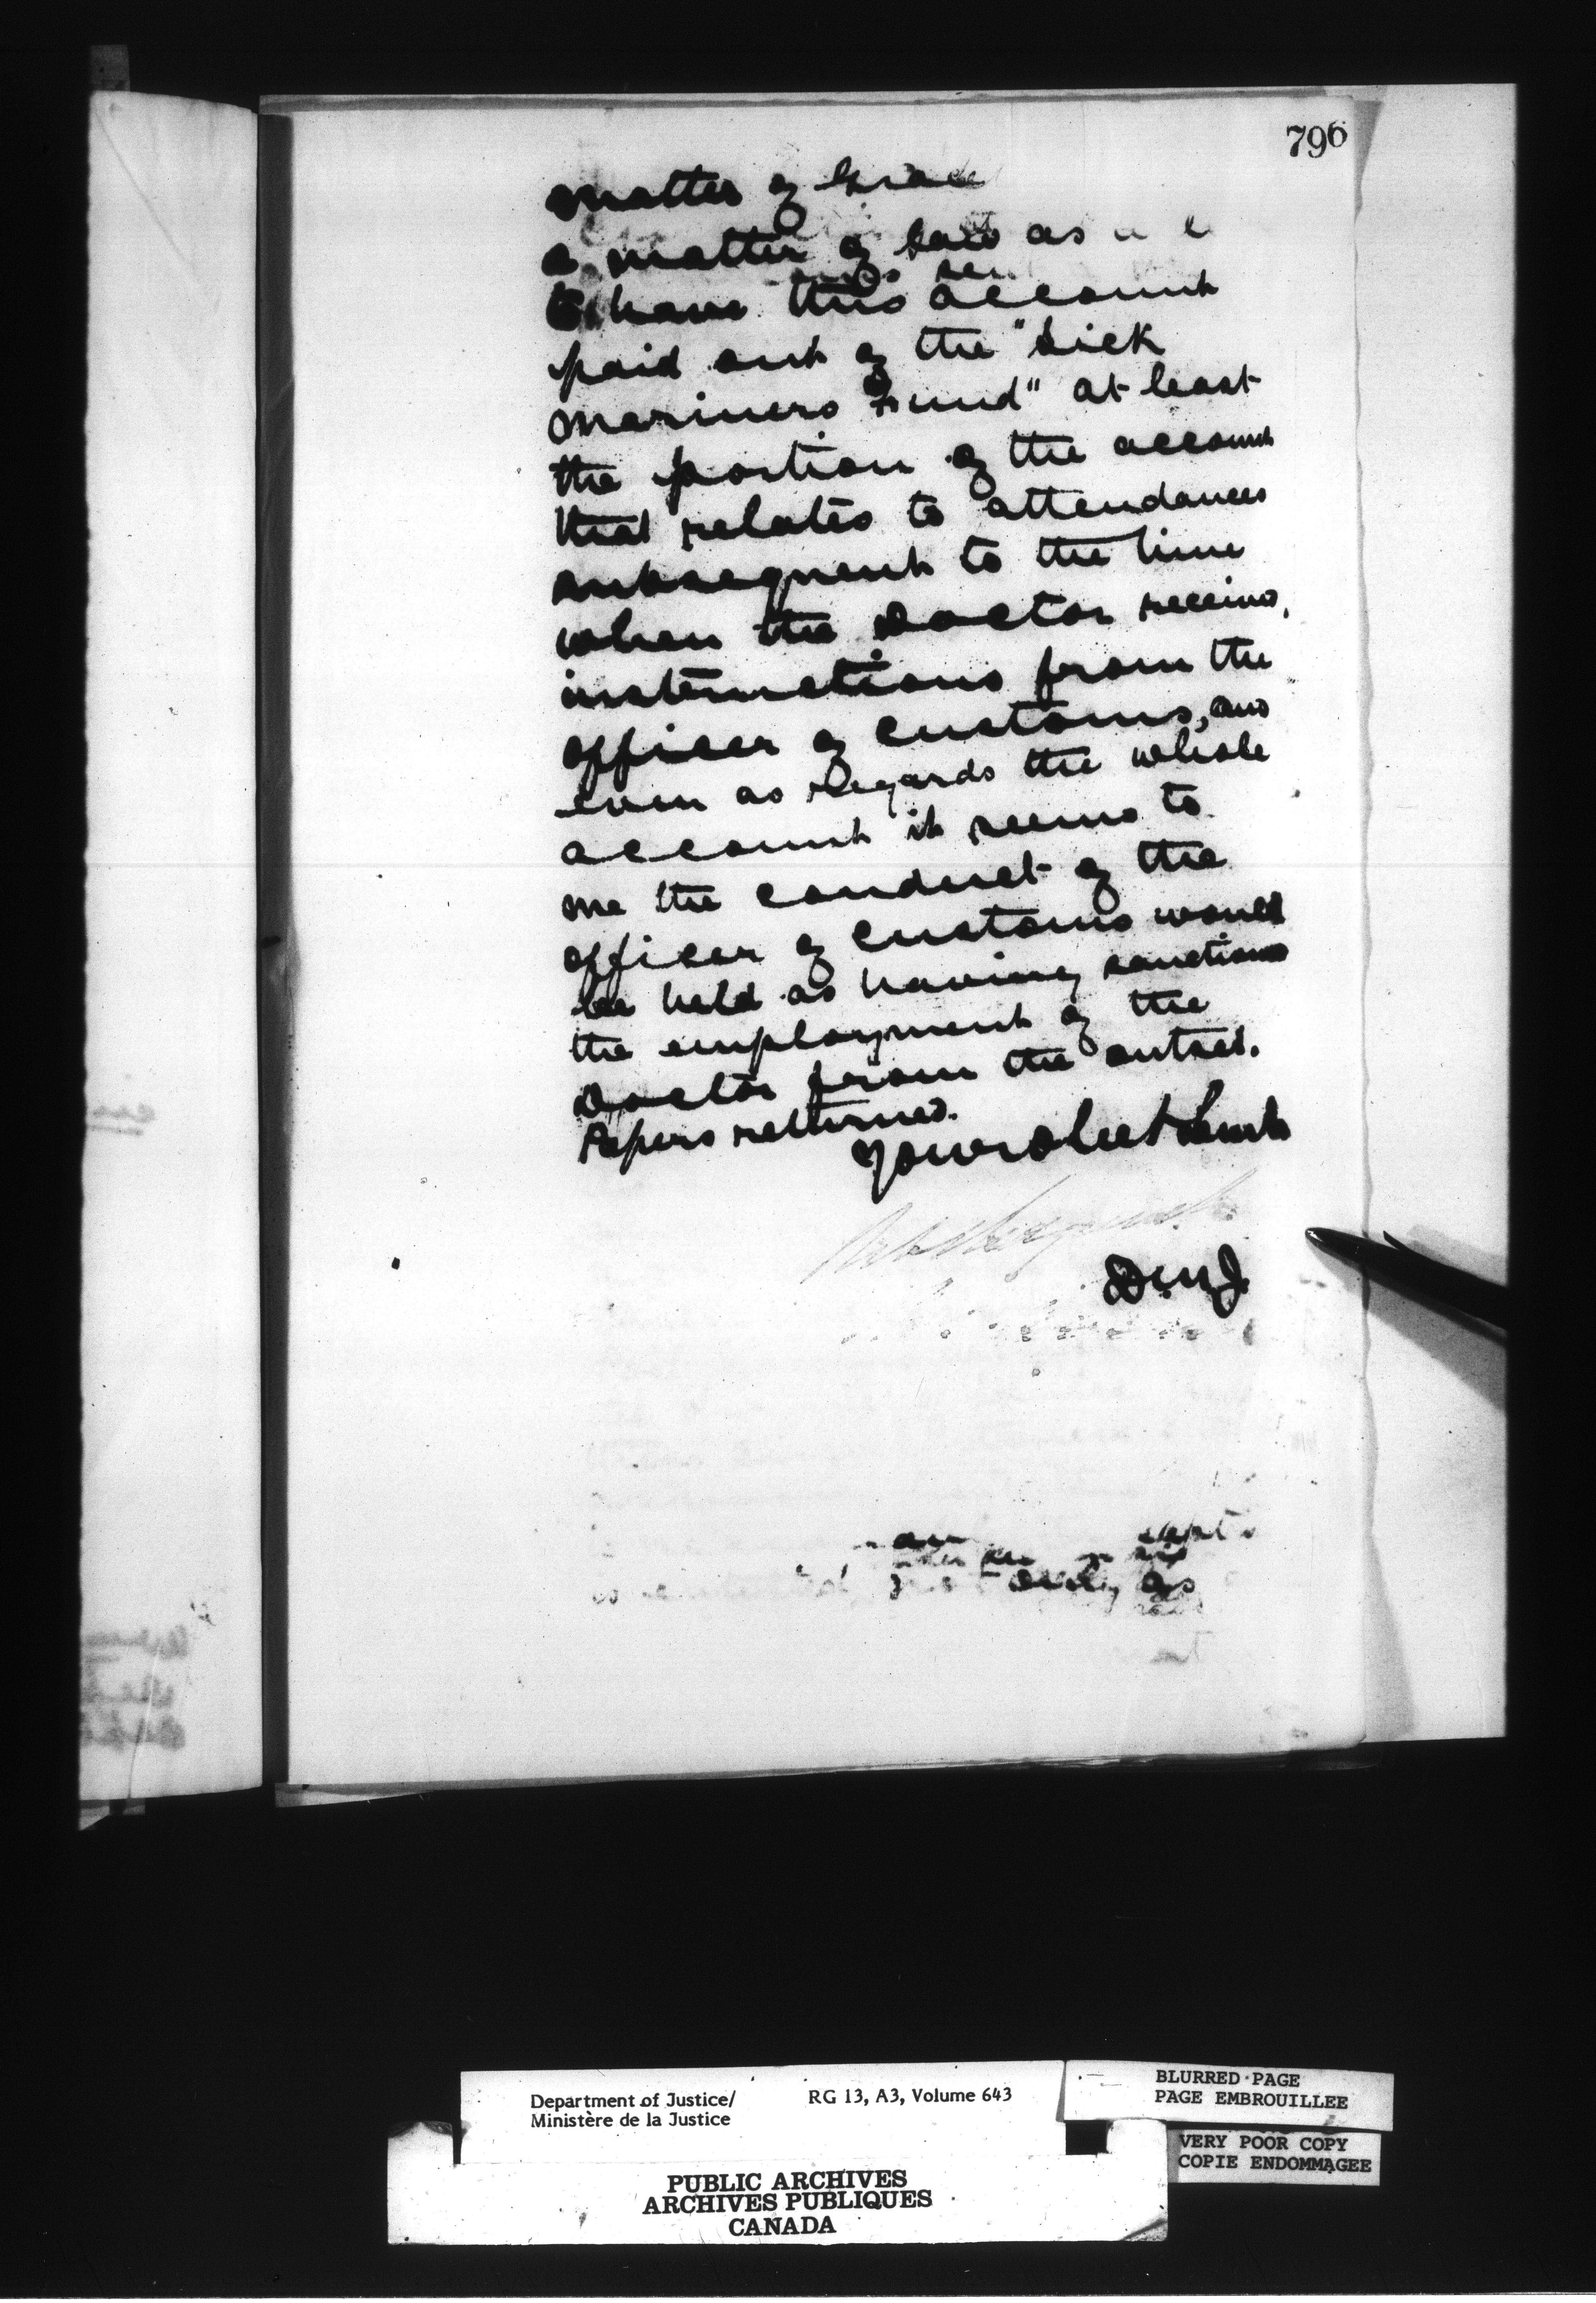 796
matter of Grace
a matter of Law as
to have this account
paid out of the "Sick
Mariners Fund" at least
the portion of the account
that relates to attendances
subsequent to the time
when the Doctor received
instructions from the
officer of customs, and
even as regards the whole
account it seems to
me the conduct of the
officer of customs would
be held as having sanctioned
the employment of the
Doctor from the outset.
Papers returned.
Your obedt Servt
D.M.J.
only as
Department of Justice/ RG 13, A3, Volume 643
Ministère de la Justice
BLURRED PAGE
PAGE EMBROUILLEE
VERY POOR COPY
COPIE ENDOMMAGEE
PUBLIC ARCHIVES
ARCHIVES PUBLIQUES
CANADA